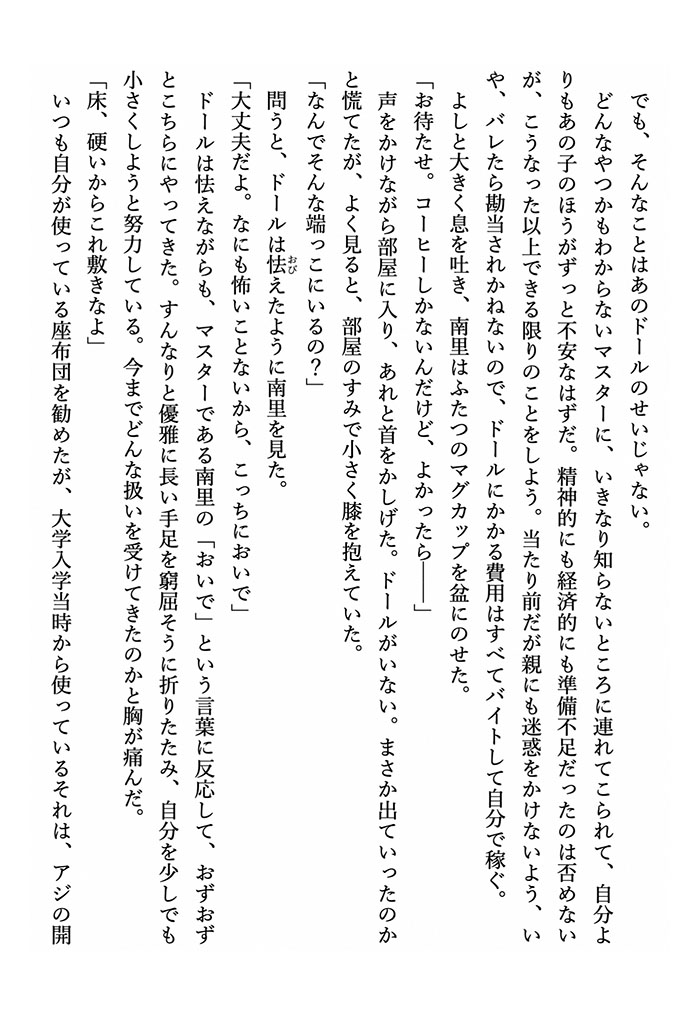 でも、そんなことはあのドールのせいじゃない。
どんなやつかもわからないマスターに、いきなり知らないところに連れてこられて、自分よ
りもあの子のほうがずっと不安なはずだ。精神的にも経済的にも準備不足だったのは否めない
が、こうなった以上できる限りのことをしよう。当たり前だが親にも迷惑をかけないよう、い
や、バレたら勘当されかねないので、ドールにかかる費用はすべてバイトして自分で稼ぐ。
よしと大きく息を吐き、南里はふたつのマグカップを盆にのせた。
「お待たせ。コーヒーしかないんだけど、よかったら――」
声をかけながら部屋に入り、あれと首をかしげた。ドールがいない。まさか出ていったのか
と慌てたが、よく見ると、部屋のすみで小さく膝を抱えていた。
「なんでそんな端っこにいるの？」
問うと、ドールは怯えたように南里を見た。
「大丈夫だよ。なにも怖いことないから、こっちにおいで」
ドールは怯えながらも、マスターである南里の「おいで」という言葉に反応して、おずおず
とこちらにやってきた。すんなりと優雅に長い手足を窮屈そうに折りたたみ、自分を少しでも
小さくしようと努力している。今までどんな扱いを受けてきたのかと胸が痛んだ。
「床、硬いからこれ敷きなよ」
いつも自分が使っている座布団を勧めたが、大学入学当時から使っているそれは、アジの開